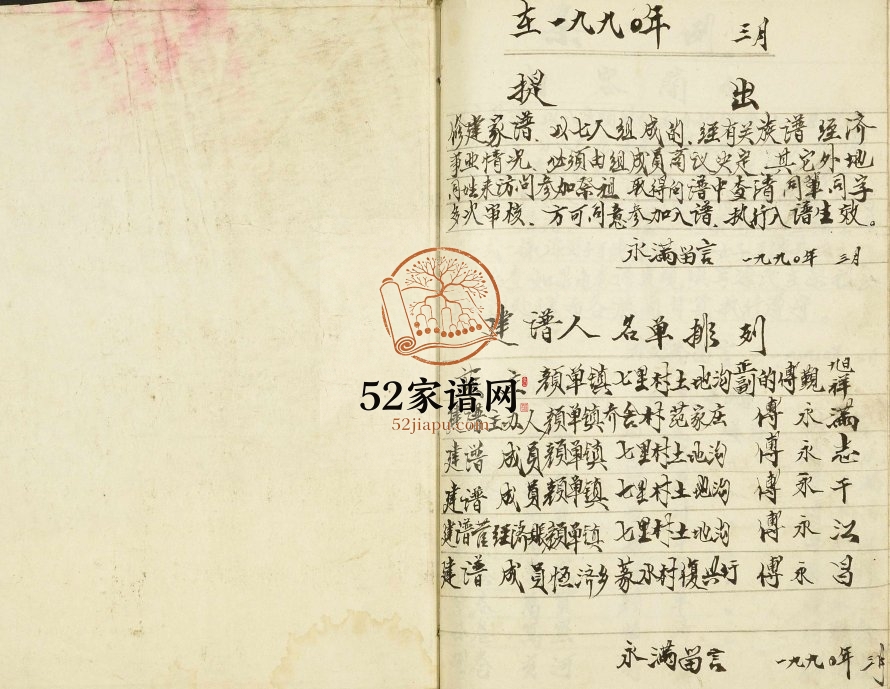 在一九九〇年 三月
提出
修建家谱、以七人组成的、经有关族谱经济
事业情况、必须由组成员商议决定、其它外地
同姓来访问参加祭祖、取得问谱中查清同辈同字
多式审核、方可同意参加入谱、执行入谱生效。
永满留言 一九九〇年 三月
建谱人名单排列
主 顔单镇七里村土地沟正副的傅觐旭祥
建谱主办人顔单镇乔舍村范家庄 傅永满
建谱成员顔单镇七里村土地沟 傅永志
建谱成员顔单镇七里村土地沟 傅永干
建谱管经济账顔单镇七里村土地沟 傅永江
建谱成员恒济乡蒙水村復兴行 傅永昌
永满留言 一九九〇年 三月
52家谱网
52jiapu.com